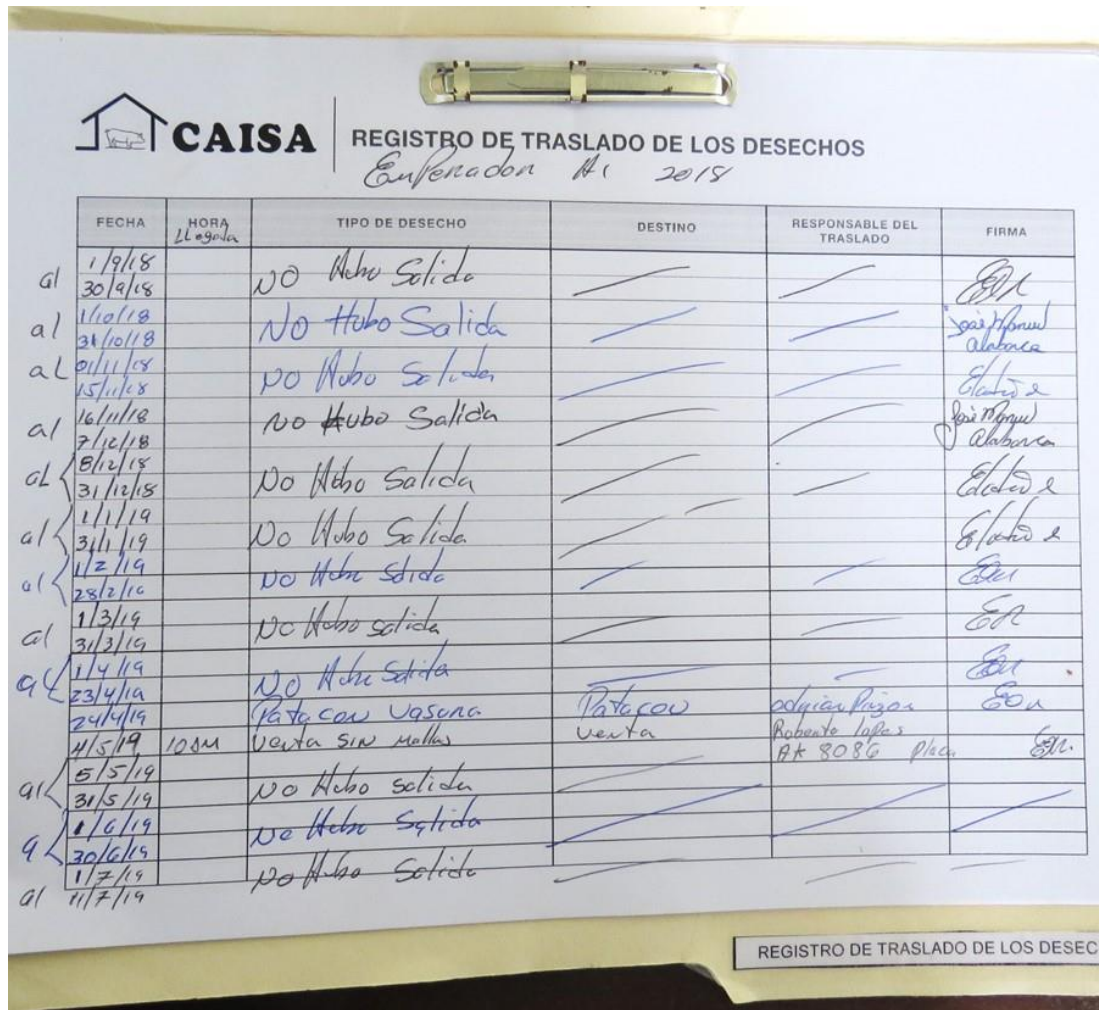 CAISA
REGISTRO DE TRASLADO DE LOS DESECHOS
A1 2018
FECHA HORA LLegada TIPO DE DESECHO DESTINO RESPONSABLE DEL TRASLADO FIRMA
1/9/18
al 30/9/18 NO Hubo Salida
1/10/18
al 31/10/18 NO Hubo Salida José Manuel
01/11/18
aL 15/11/18 NO Hubo Salida
16/11/18
al 7/12/18 No Hubo Salida José Manuel
8/12/18
aL 31/12/18 No Hubo Salida
1/1/19
al 31/1/19 No Hubo Salida
1/2/19
al 28/2/19 No Hubo Salida
1/3/19
al 31/3/19 No Hubo salida
1/4/19
al 23/4/19 NO Hubo Salida
24/4/19 Patacon Patacon
4/5/19 10 AM Venta SIN Mallas Venta Roberto
AK 8086 Placa
5/5/19
al 31/5/19 No Hubo salida
1/6/19
a 30/6/19 No Hubo Salida
1/7/19 No Hubo Salida
al 11/7/19
REGISTRO DE TRASLADO DE LOS DESEC